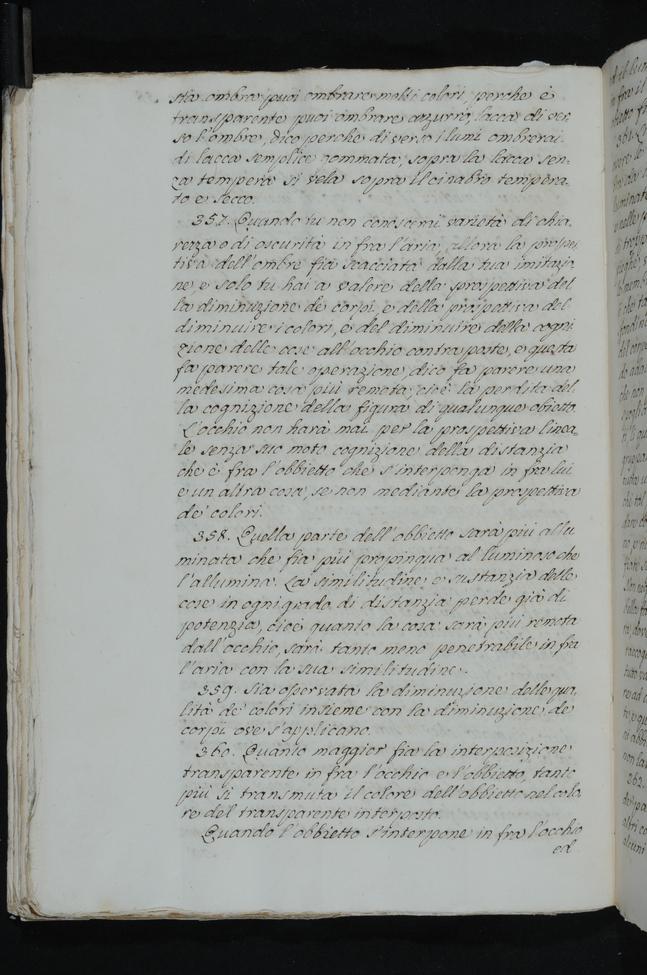 sta ombra puoi ombrare molti colori, perche è
transparente puoi ombrare azurrò, lacca di ver
so l'ombre, dico perche di verso i lumi ombrerai
di lacca semplice gommata, sopra la lacca sen-
za tempera si vela sopra il cinabro tempera-
to e secco.
357. Quando tu non conoscerai varietà di chia
rezza o di oscurità in fra l'aria, allora la prospet
tiva dell'ombre fia scacciata dalla tua imitazio
ne e solo tu hai a valere della prospettiva del
la diminuzione de corpi e della prospettiva del
diminuire i colori, e del diminuire della cogni
zione delle cose all'occhio contra poste, e questa
fa parere tale operazione, dico fa parere una
medesima cosa più remota, cioè la perdita del
la cognizione della figura di qualunque obietto.
L'occhio non harà mai per la prospettiva linea
le senza suo moto cognizione della distanzia
che è fra l'obbietto che s'interponga in fra lui
e un altra cosa, se non mediante la prospettiva
de' colori.
358. Quella parte dell'obbietto sarà più allu
minata che fia più propinqua al luminoso che
l'allumina. La similitudine e sustanzia delle
cose in ogni grado di distanzia perde già di
potenzia, cioè quanto la cosa sarà più remota
dall'occhio, sarà tanto meno penetrabile in fra
l'aria con la sua similitudine.
359. Sia osservata la diminuzione delle qua
lità de' colori insieme con la diminuzione de
corpi ove s'applicano.
360. Quanto maggior fia la interposizione
transparente in fra l'occhio e l'obbietto, tanto
più si transmuta il colore dell'obbietto nel colo
re del transparente interposto.
Quando l'obbietto s'interpone in fra l'occhio
ed